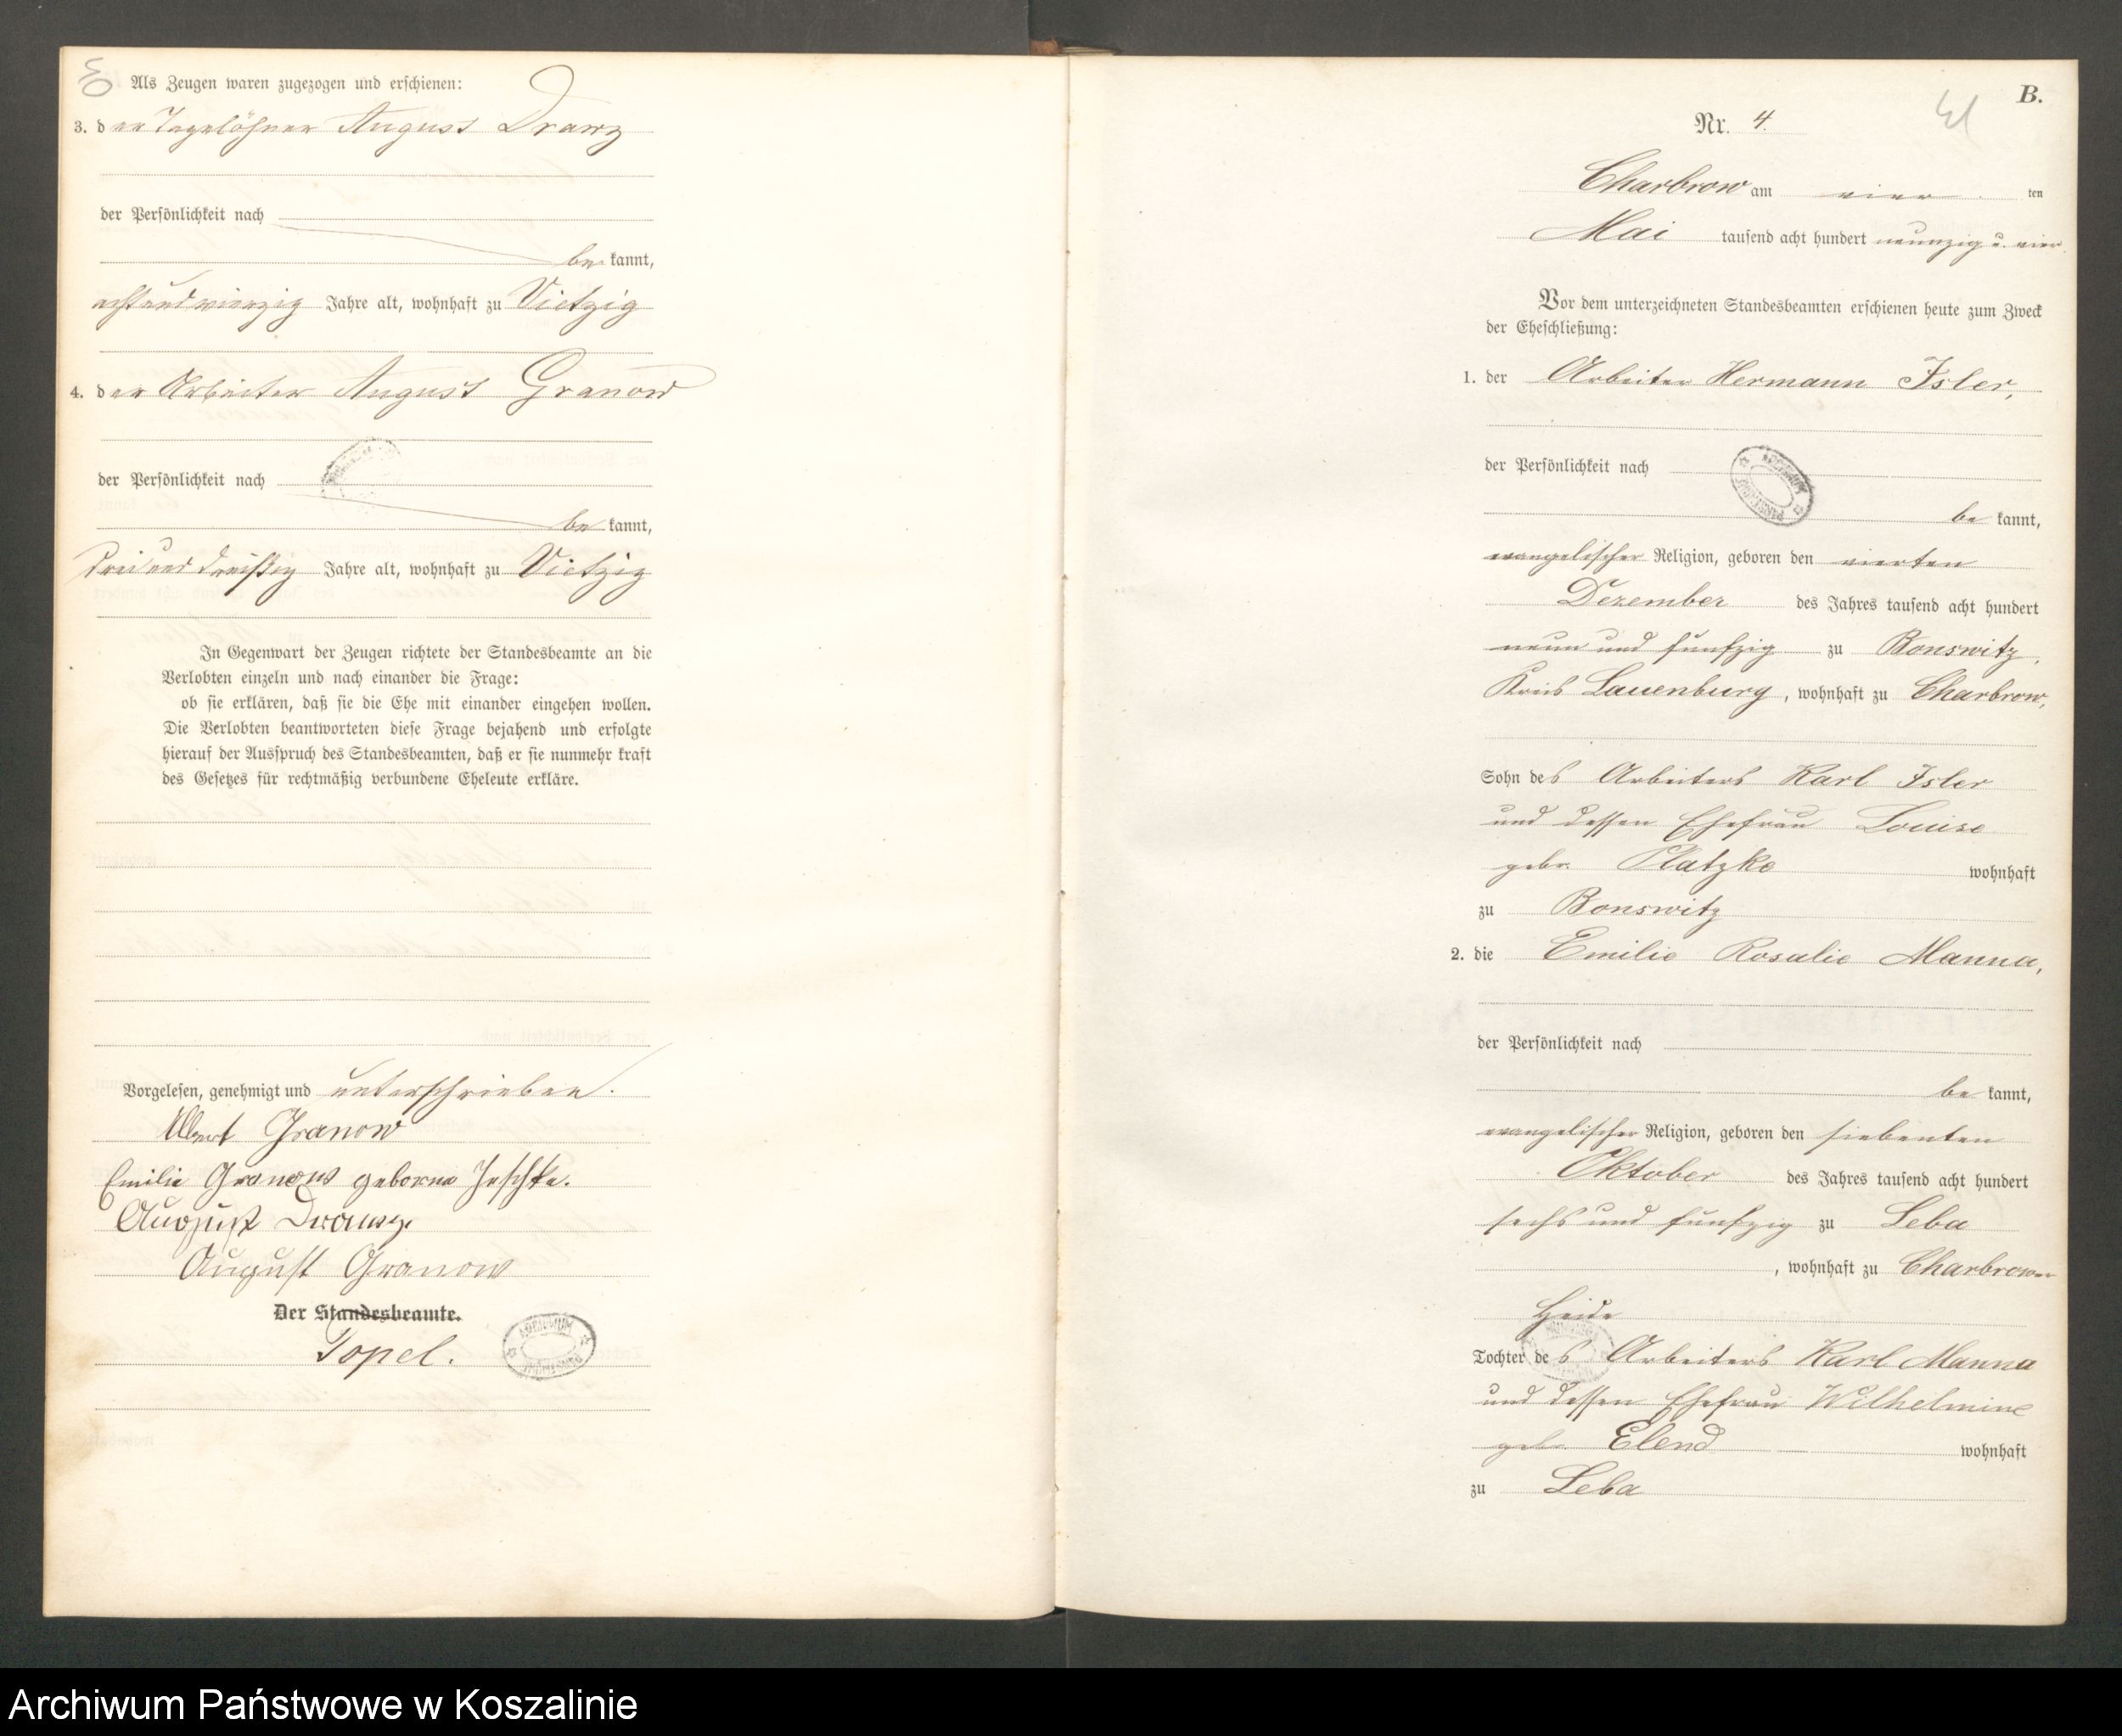 Als Zeugen waren zugezogen und erschienen:
3. der Tagelöhner August Drawz
der Persönlichkeit nach
bekannt,
achtundvierzig Jahre alt, wohnhaft zu Vietzig
4. der Arbeiter August Granow
der Persönlichkeit nach
bekannt,
dreiunddreißig Jahre alt, wohnhaft zu Vietzig
In Gegenwart der Zeugen richtete der Standesbeamte an die
Verlobten einzeln und nach einander die Frage:
ob sie erklären, daß sie die Ehe mit einander eingehen wollen.
Die Verlobten beantworteten diese Frage bejahend und erfolgte
hierauf der Ausspruch des Standesbeamten, daß er sie nunmehr kraft
des Gesetzes für rechtmäßig verbundene Eheleute erkläre.
Vorgelesen, genehmigt und unterschrieben.
Albert Granow
Emilie Granow geborne Jeschke.
August Drawz.
August Granow
Der Standesbeamte.
Topel.
ARCHIWUM PAŃSTWOWE
B.
Nr. 4.
Charbrow am vierten
Mai tausend acht hundert neunzig u. vier
Vor dem unterzeichneten Standesbeamten erschienen heute zum Zweck
der Eheschließung:
1. der Arbeiter Hermann Isler,
der Persönlichkeit nach
ARCHIWUM PAŃSTWOWE
bekannt,
evangelischer Religion, geboren den vierten
Dezember des Jahres tausend acht hundert
neun und funfzig zu Bonswitz,
Kreis Lauenburg, wohnhaft zu Charbrow,
Sohn des Arbeiters Karl Isler
und dessen Ehefrau Louise
gebr. Platzke wohnhaft
zu Bonswitz
2. die Emilie Rosalie Manna,
der Persönlichkeit nach
bekannt,
evangelischer Religion, geboren den siebenten
Oktober des Jahres tausend acht hundert
sechs und funfzig zu Leba
, wohnhaft zu Charbrower
Heide
Tochter des Arbeiters Karl Manna
und dessen Ehefrau Wilhelmine
geb. Elend wohnhaft
zu Leba
Archiwum Państwowe w Koszalinie